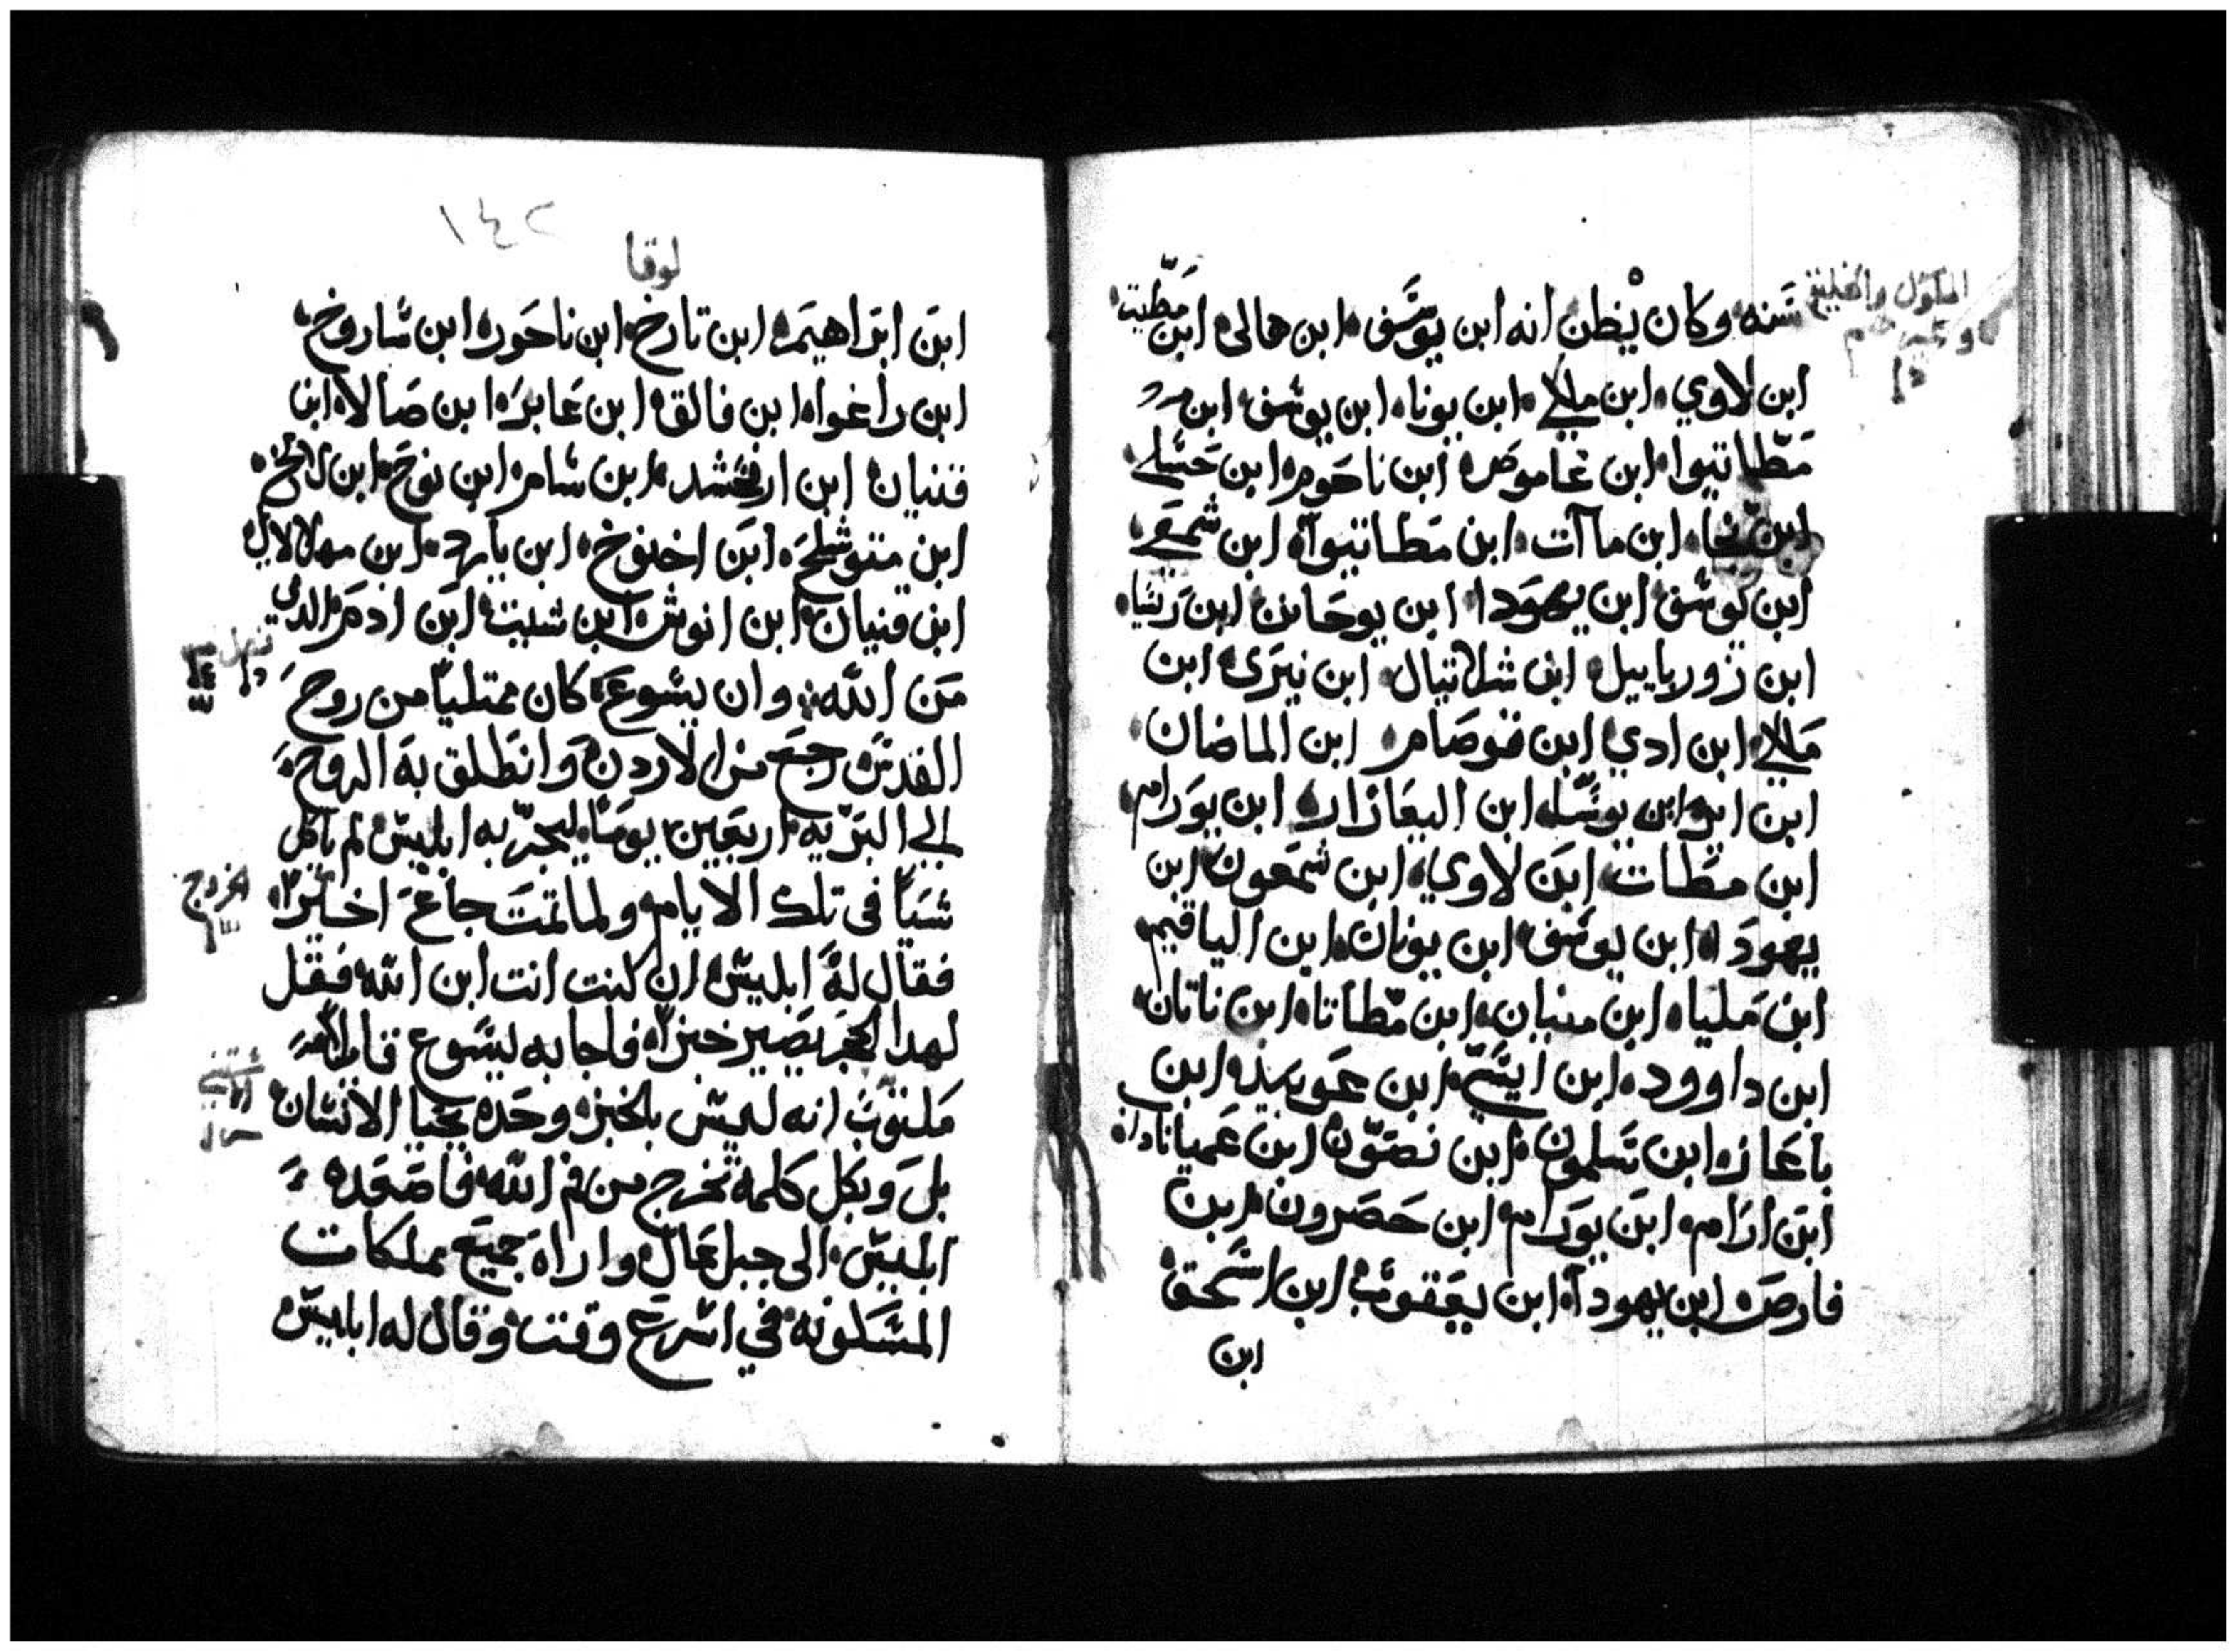 سنه وكان يُظن انه ابن يوسف ابن هالى ابن مطيت
ابن لاوي ابن ملكي ابن يونا ابن يوسف ابن
مطاتيوا ابن عاموص ابن ناحوم ابن حسلي
ابن نجا ابن ماآت ابن مطاتيوا ابن شمعي
ابن يوسف ابن يهودا ابن يوحانن ابن ريسا
ابن زورباييل ابن شلاتيال ابن نيرى ابن
ملكي ابن ادي ابن قوصام ابن الماضان
ابن اير ابن يوسا ابن اليعازار ابن يورام
ابن مطات ابن لاوي ابن شمعون ابن
يهودا ابن يوسف ابن يونان ابن الياقيم
ابن مليا ابن منيان ابن مطاتا ابن ناتان
ابن داوود ابن ايسي ابن عوبيد ابن
باعاز ابن سلمون ابن نصون ابن عميناداب
ابن ارام ابن يورام ابن حصرون ابن
فارص ابن يهودا ابن يعقوب ابن اسحق
ابن
١٤٢
لوقا
ابن ابراهيم ابن تارخ ابن ناحور ابن شاروخ
ابن راغوا ابن فالق ابن عابر ابن صالا ابن
قنيان ابن ارفخشد ابن سام ابن نوح ابن لامخ
ابن متوشلح ابن اخنوخ ابن يارد ابن مهلالايل
ابن قنيان ابن انوش ابن شيت ابن ادم الدى
من الله وان يسوع كان ممتلياً من روح
القدس رجع من الاردن وانطلق به الروح
الي البريه اربعين يوماً ليجرّبه ابليس لم ياكل
شياً فى تلك الايام ولما تمت جاع اخيراً
فقال له ابليس ان كنت انت ابن الله فقل
لهدا الحجر يصير خبزاً فاجابه يسوع قايلاً
مكتوب انه ليس بالخبز وحده يحيا الانسان
بل وبكل كلمه تخرج من فم الله فاصعده
ابليس الى جبل عال واراه جميع مملكات
المسكونه في اسرع وقت وقال له ابليس
الخروج